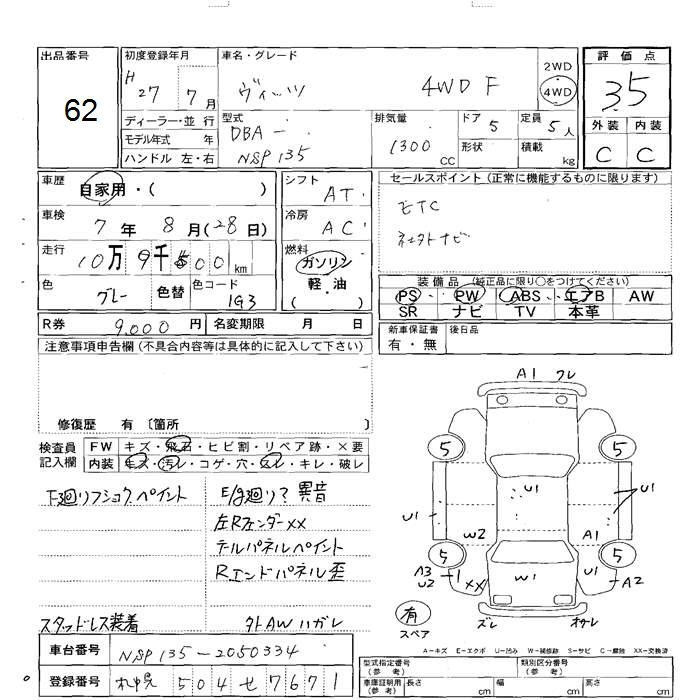 出品番号
62
初度登録年月
H27 7月
車名・グレード
ヴィッツ 4WD F
2WD
4WD
評価点
3.5
外装 内装
C C
ディーラー・並行
モデル年式 年
ハンドル 左・右
型式
DBA-
NSP135
排気量
1300 cc
ドア 5
形状
定員 5人
積載 kg
車歴
自家用・( )
シフト
AT
セールスポイント(正常に機能するものに限ります)
ETC
車検
7年 8月(28日)
冷房
AC
走行
10万9千500km
燃料
ガソリン
軽・油
( )
色
グレー
色替
色コード
1G3
装備品(純正品に限り○をつけてください)
PS・ PW ABS エアB AW
SR ナビ TV 本革
R券 9,000円
名変期限 月 日
新車保証書
有・無
後日品
注意事項申告欄(不具合内容等は具体的に記入して下さい)
修復歴 有〔箇所
検査員
記入欄
FW キズ・飛石・ヒビ割・リペア跡・×要
内装 キズ・汚レ・コゲ・穴・スレ・キレ・破レ
下廻リフショク、ペイント
E/g廻リ?異音
左Rフェンダーxx
テルパネルペイント
Rエンドパネル歪
スタッドレス装着
外AWハガレ
車台番号 NSP135-2050334
登録番号 札幌 504 せ 7671
A1 ワレ
5
5
U1
U1
U1
W2
A1
5
5
A3
U2
1
XX
W1
U1
A2
有
スペア
ズレ
A-キズ E-エクボ U-凹ミ W-補修跡 S-サビ C-腐蝕 XX-交換済
型式指定番号
(参考)
類別区分番号
(参考)
車庫証明用
(参考)
長さ cm
幅 cm
高さ cm